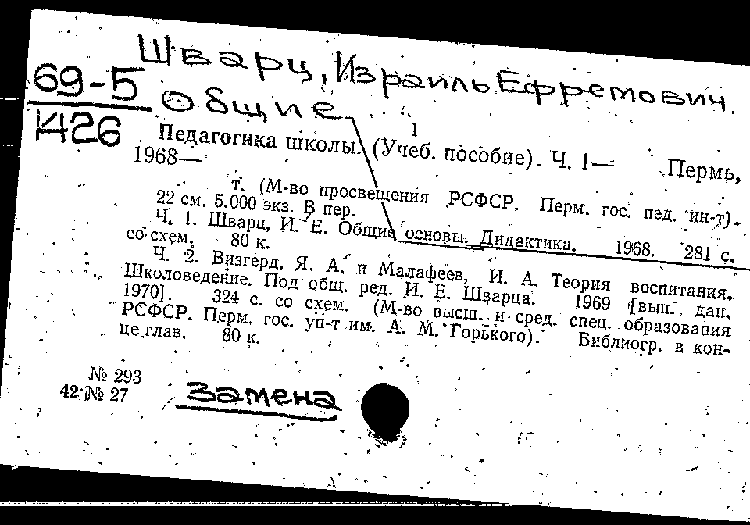 Шварц, Израиль Ефремович.
69-5
1426
Общие
Педагогика школы. (Учеб. пособие). Ч. 1— Пермь,
1968—
т. (М-во просвещения РСФСР. Перм. гос. пед. ин-т).
22 см. 5.000 экз. В пер.
Ч. 1. Шварц, И. Е. Общие основы. Дидактика. 1968. 281 с.
со схем. 80 к.
Ч. 2. Визгерд, Я. А. и Малафеев, И. А. Теория воспитания.
Школоведение. Под общ. ред. И. Е. Шварца. 1969 [вып. дан.
1970]. 324 с. со схем. (М-во высш. и сред. спец. образования
РСФСР. Перм. гос. ун-т им. А. М. Горького). Библиогр. в кон-
це глав. 80 к.
№ 293
42 № 27
замена